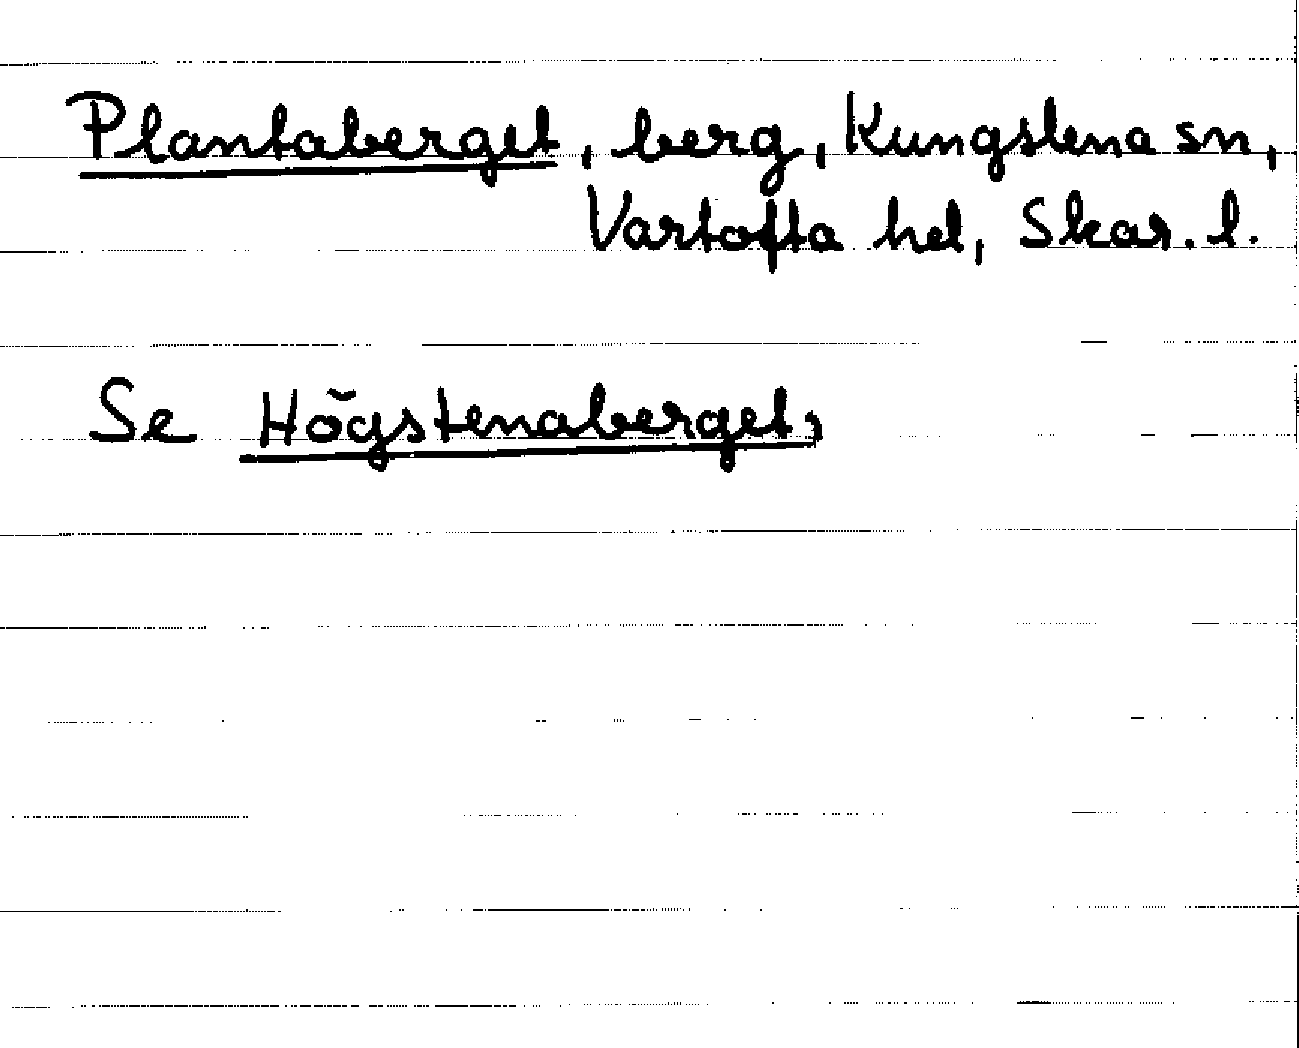 Plantaberget, berg, Kungslena sn,
Vartofta hd, Skar. l.
Se Högstenaberget,